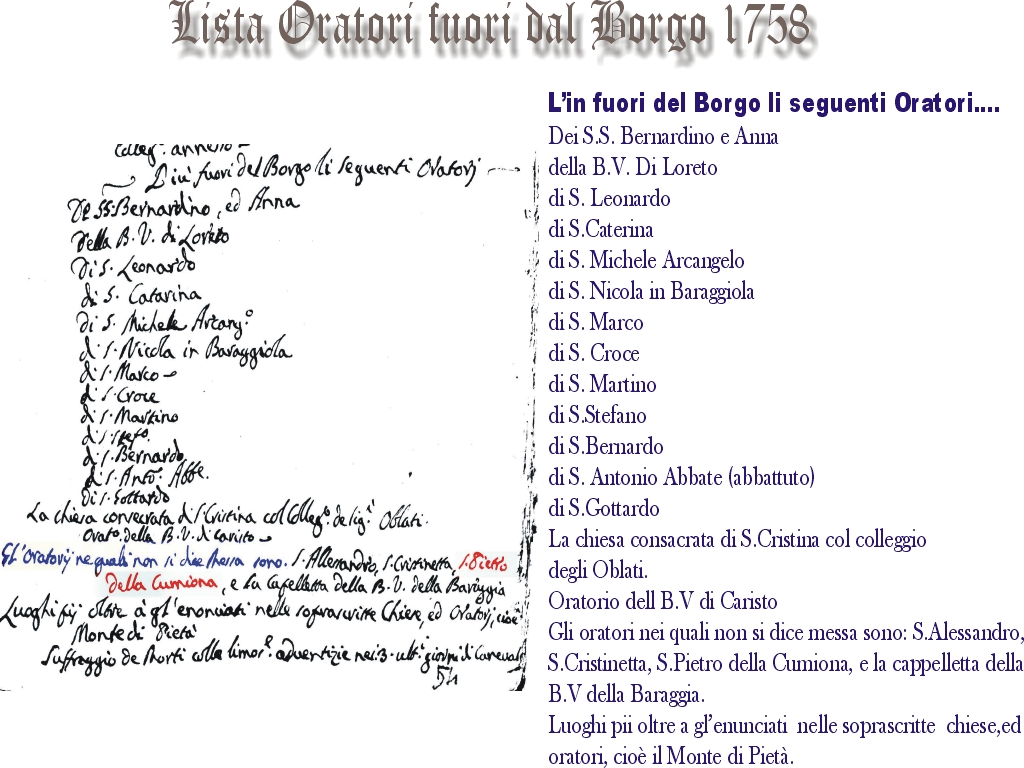 Lista Oratori fuori dal Borgo 1758
Colleg. annesso
Di più fuori del Borgo li seguenti Oratorj
De SS. Bernardino, ed Anna
della B. V. di Loreto
Di S. Leonardo
di S. Catarina
di S. Michele Arcang.o
di S. Nicola in Baraggiola
di S. Marco
di S. Croce
di S. Martino
di S. Stef.o
di S. Bernardo
di S. Anto. Abbe.
Di S. Gottardo
La chiesa consecrata di S. Cristina col Colleg.o de Sig.i Oblati.
Orat.o della B. V. di Caristo
Gl'Oratorij ne quali non si dice Messa sono. S. Allessandro, S. Cristinetta, S. Pietro
della Cumiona, e la Capelletta della B. V. della Baraggia
Luoghi pij oltre à gl'enonciati nelle soprascritte Chiese, ed Oratorj, cioè
Monte di Pietà
Suffraggio de Morti colle limos.e adventizie nei 3 ult.i giorni di Carnevale
54
L'in fuori del Borgo li seguenti Oratori....
Dei S.S. Bernardino e Anna
della B.V. Di Loreto
di S. Leonardo
di S.Caterina
di S. Michele Arcangelo
di S. Nicola in Baraggiola
di S. Marco
di S. Croce
di S. Martino
di S.Stefano
di S.Bernardo
di S. Antonio Abbate (abbattuto)
di S.Gottardo
La chiesa consacrata di S.Cristina col colleggio
degli Oblati.
Oratorio dell B.V di Caristo
Gli oratori nei quali non si dice messa sono: S.Alessandro,
S.Cristinetta, S.Pietro della Cumiona, e la cappelletta della
B.V della Baraggia.
Luoghi pii oltre a gl'enunciati nelle soprascritte chiese,ed
oratori, cioè il Monte di Pietà.